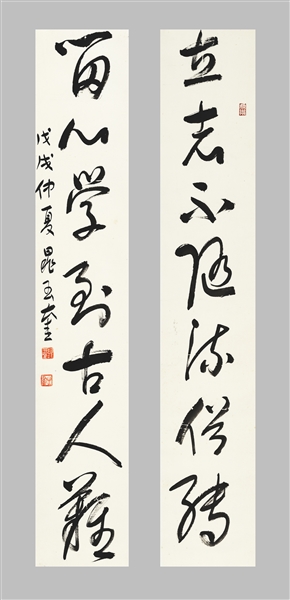 立志不随流俗转
留心学到古人难
戊戌仲夏晁玉奎